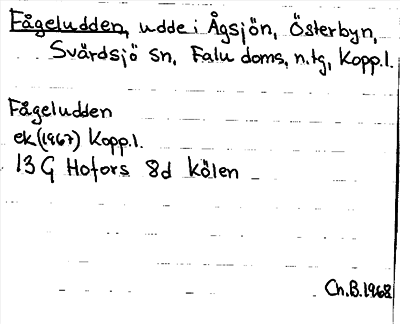 Fågeludden, udde i Ågsjön, Österbyn,
Svärdsjö sn, Falu doms. n. tg, Kopp. l.
Fågeludden
ek (1967) Kopp. l.
13 G Hofors 8d Kölen
Ch. B. 1968